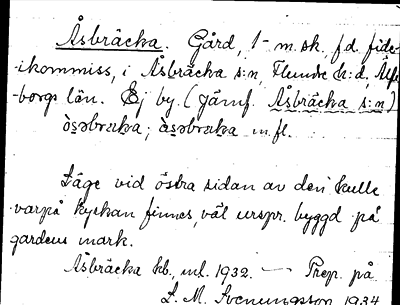 Åsbräcka. Gård, 1 m.sk., f.d. fide-
ikommiss, i Åsbräcka s:n, Flundre h:d, Älfs-
borgs län. Ej by. (Jämf. Åsbräcka s:n)
m.fl.
Läge vid östra sidan av den kulle
varpå kyrkan finnes, väl urspr. byggd på
gårdens mark.
Åsbräcka kb., inl. 1932. — Prep. på
L. M. Svenungsson 1934